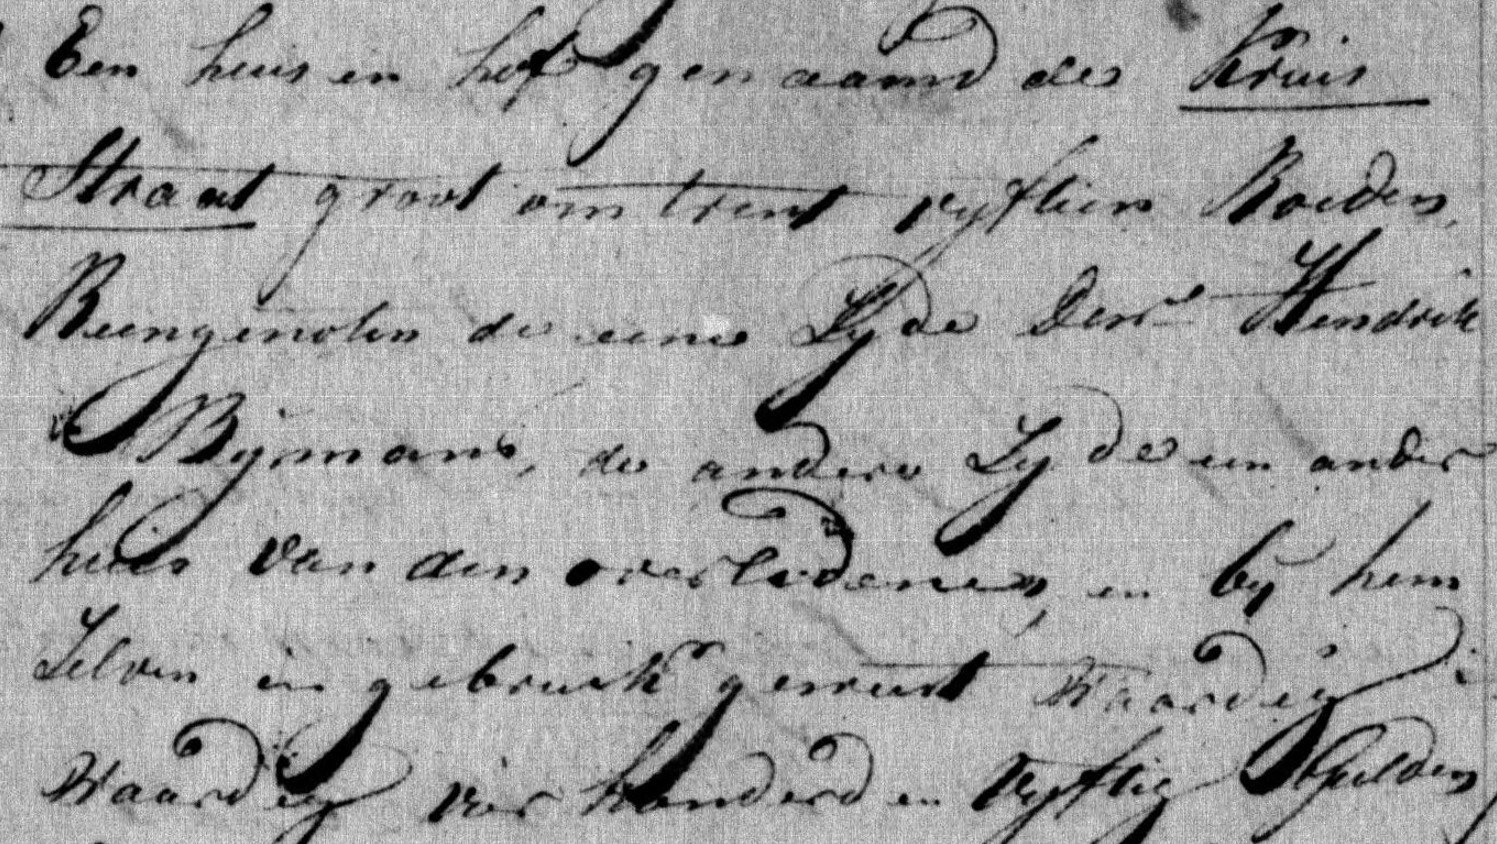 Een huis en hof genaamd des Kruis
Straat groot omtrent vyftien Roeden,
Reengenoten de eene Zyde Derk Hendrik
Bijmans, de andere Zyde een ander
huis van den overledenen, en by hem
Zelven in gebruik geweest Waardig
Waardig vier honderd en Vyftig Gulden